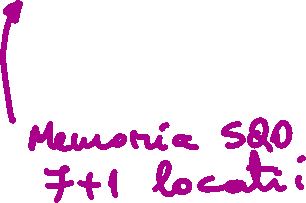 Memoria SQD
7+1 locatii